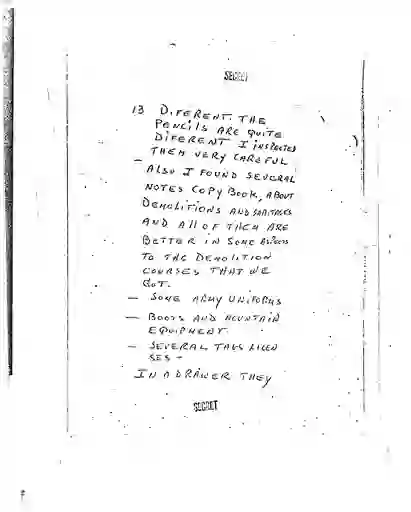 SECRET
13 DIFERENT. THE
PENCILS ARE QUITE
DIFERENT I INSPECTED
THEM VERY CAREFUL
- ALSO I FOUND SEVERAL
NOTES COPY BOOK, ABOUT
DEMOLITIONS AND SABOTAGES
AND All OF THEM ARE
BETTER IN SOME ASPECTS
TO THE DEMOLITION
COURSES THAT WE
GOT.
- SOME ARMY UNIFORMS
- BOOTS AND MOUNTAIN
EQUIPMENT.
- SEVERAL TAGS LICEN
SES -
IN A DRAWER THEY
SECRET